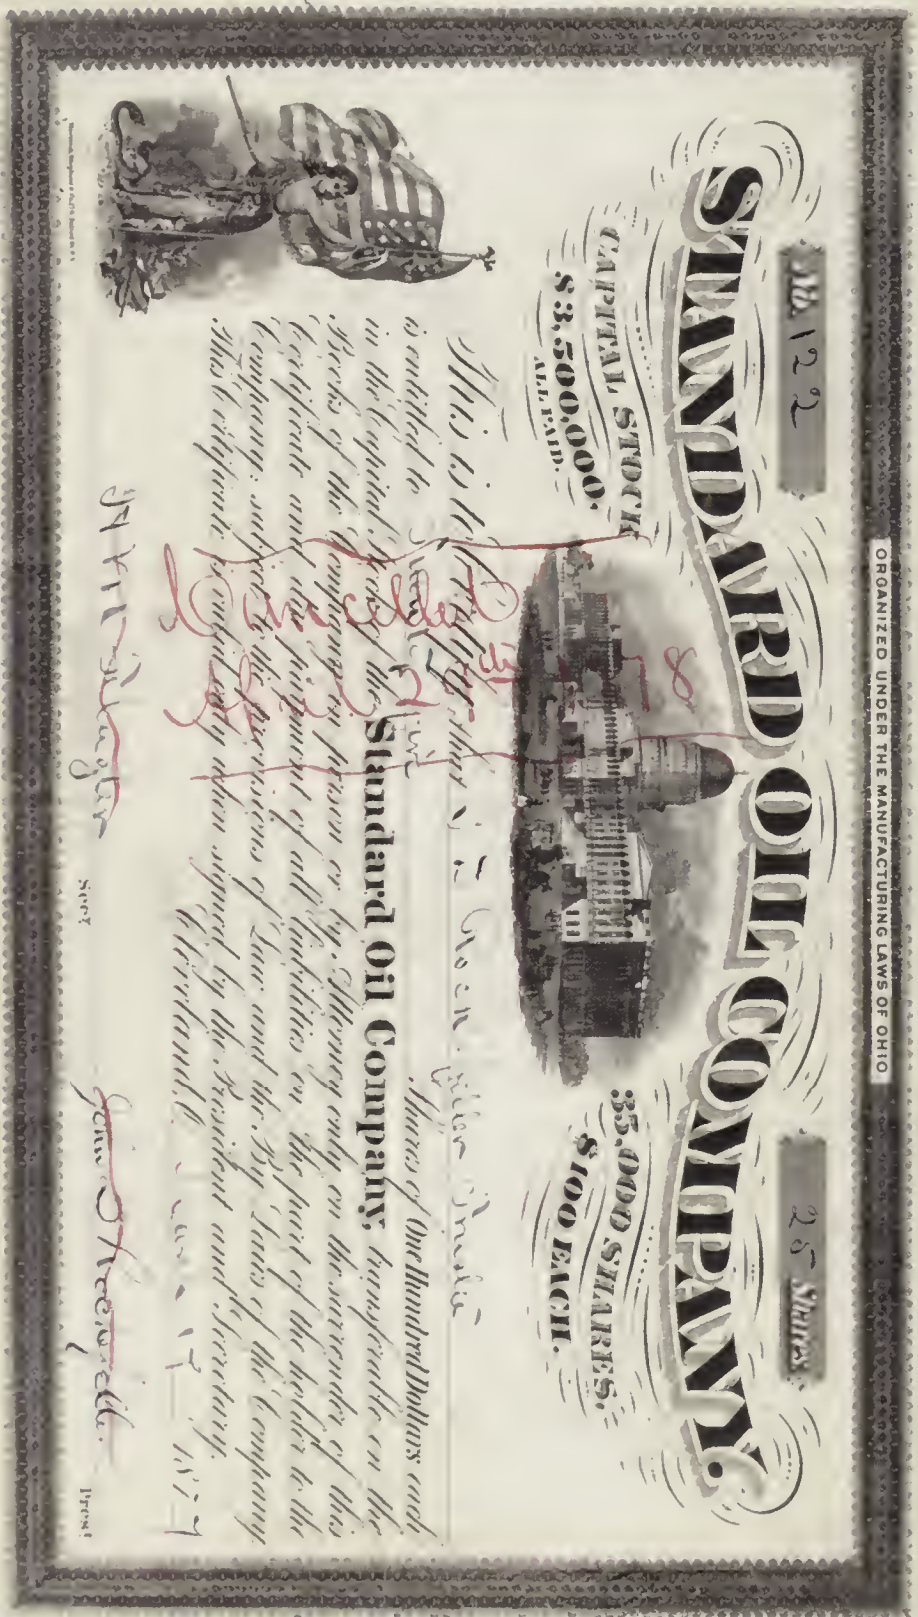 ORGANIZED UNDER THE MANUFACTURING LAWS OF OHIO.
No. 122
25 Shares
STANDARD OIL COMPANY.
CAPITAL STOCK
$3,500,000.
ALL PAID.
35,000 SHARES.
$100 EACH.
This is to Certify that
is entitled to Shares of One Hundred Dollars each
in the Capital Stock of the Standard Oil Company transferable on the
Books of the Company in person or by Attorney only on the surrender of this
Certificate and the payment of all liabilities on the part of the holder to the
Company, subject to the provisions of Law and the By Laws of the Company
This Certificate when signed by the President and Secretary.
Cleveland, O.
Cancelled
April
Secy.
Prest.